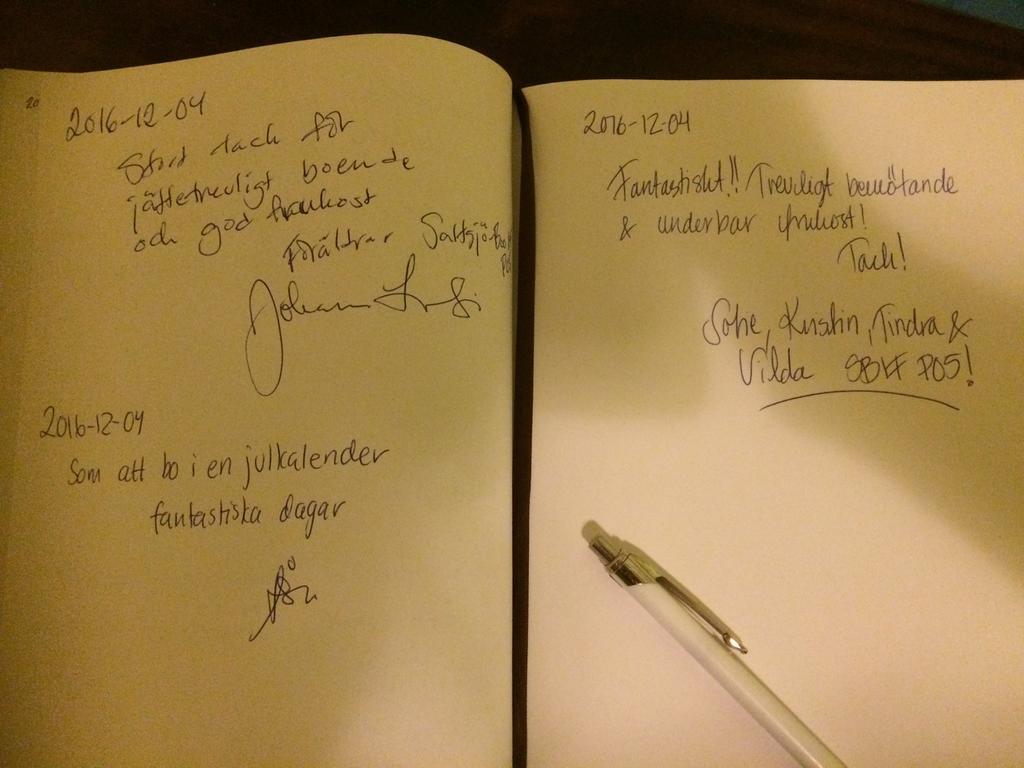 20
2016-12-04
Stort tack för
jättetrevligt boende
och god frukost
Föräldrar Saltsjö
Johan
2016-12-04
Som att bo i en julkalender
fantastiska dagar
2016-12-04
Fantastiskt!! Trevligt bemötande
& underbar frukost!
Tack!
Kristin, Tindra &
Vilda SBK P05!